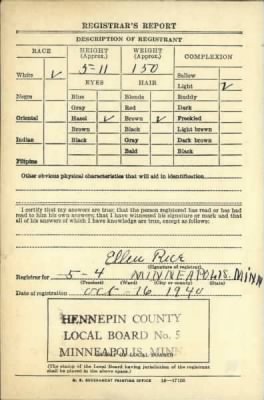 REGISTRAR'S REPORT
DESCRIPTION OF REGISTRANT
RACE HEIGHT (Approx.) WEIGHT (Approx.) COMPLEXION
5-11 150
White ✓ EYES HAIR Sallow
Light ✓
Negro Blue Blonde Ruddy
Gray Red Dark
Oriental Hazel ✓ Brown ✓ Freckled
Brown Black Light brown
Indian Black Gray Dark brown
Bald Black
Filipino
Other obvious physical characteristics that will aid in identification
I certify that my answers are true; that the person registered has read or has had
read to him his own answers; that I have witnessed his signature or mark and that
all of his answers of which I have knowledge are true, except as follows:
Ellen Rice
(Signature of registrar)
Registrar for 5-4 MINNEAPOLIS, MINN
(Precinct) (Ward) (City or county) (State)
Date of registration Oct-16-1940
HENNEPIN COUNTY
LOCAL BOARD No. 5
MINNEAPOLIS, MINN
(The stamp of the Local Board having jurisdiction of the registrant
shall be placed in the above space.)
U. S. GOVERNMENT PRINTING OFFICE 16—17105